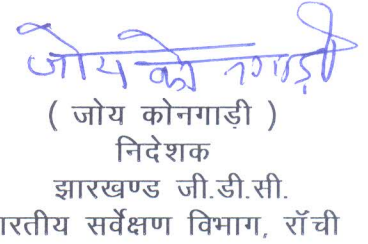 जोय कोनगाड़ी
( जोय कोनगाड़ी )
निदेशक
झारखण्ड जी.डी.सी.
ारतीय सर्वेक्षण विभाग, रॉची